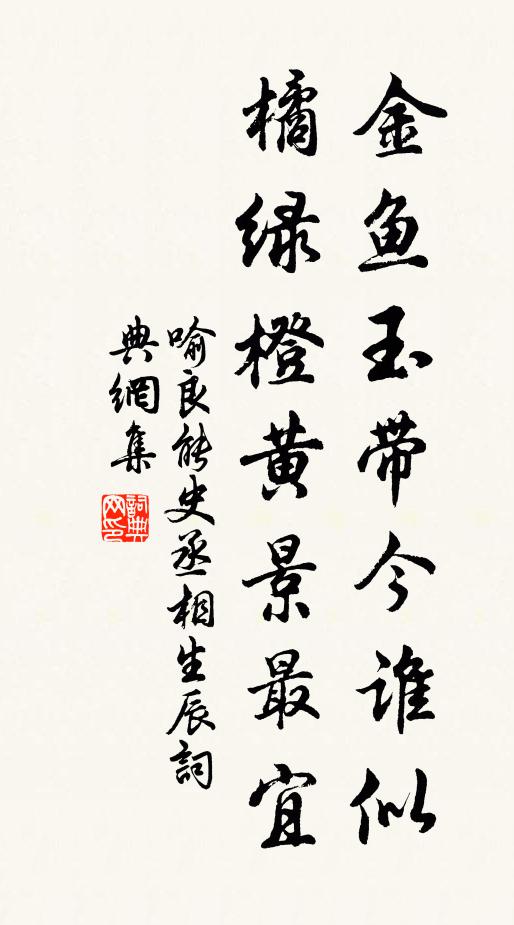 金鱼玉带今谁似
橘绿橙黄景最宜
喻良能史丞相生辰詞
典網集
詞典
网印